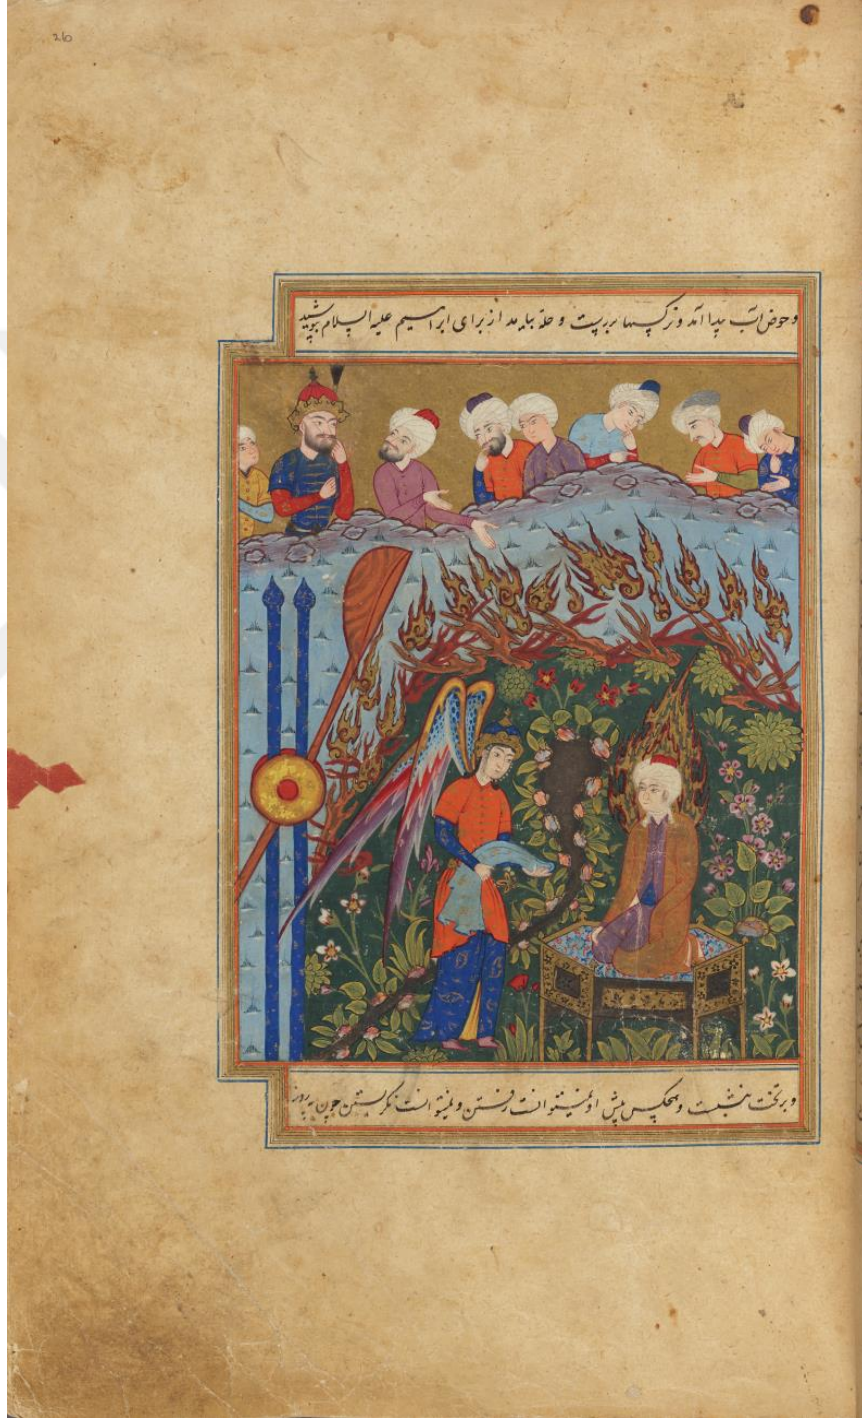 26
و حوض آب پیدا آمد و نرگسها بررست و حله بیامد از برای ابراهیم علیه السلام بپوشید
و بر تخت بنشست و هیچکس پیش او نمیتوانست رفتن و نمیتوانست نگرستن چون سه روز